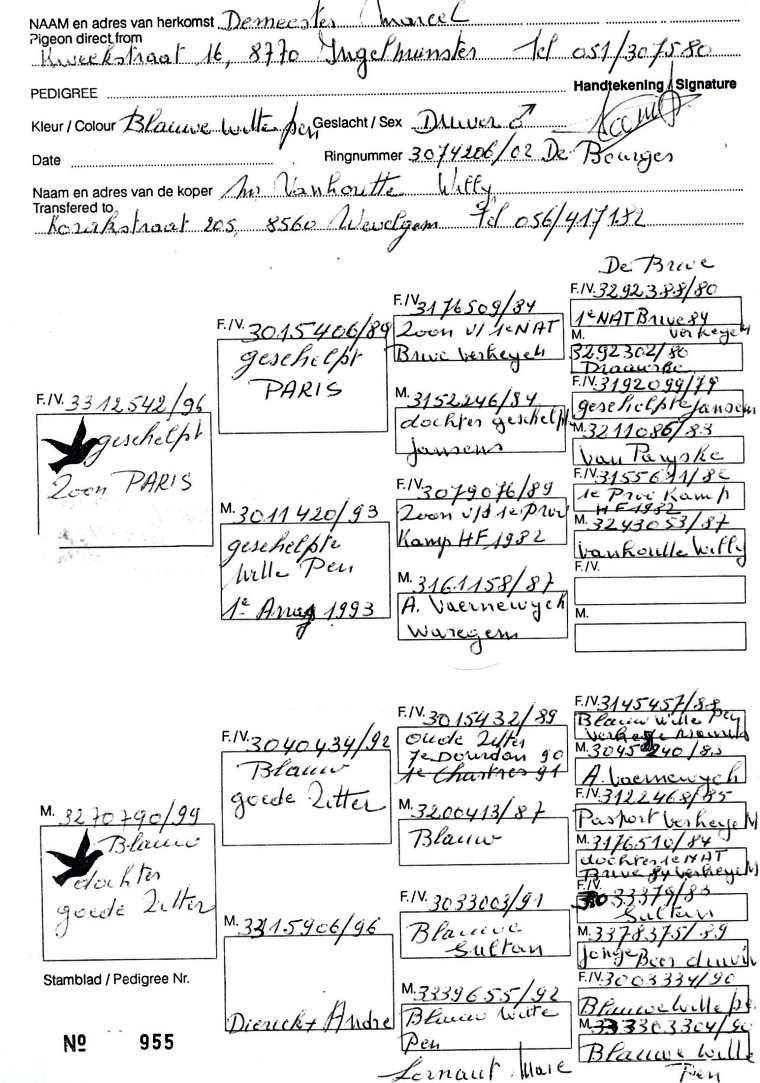 NAAM en adres van herkomst Demeester Marcel
Pigeon direct from
Kweekstraat 16, 8770 Ingelmunster Tel 051/307580
PEDIGREE
Handtekening / Signature
Kleur / Colour Blauwe witte pen Geslacht / Sex Duiver ♂
Date
Ringnummer 3074206/02 De Bourges
Naam en adres van de koper Mr Vanhoutte Willy
Transfered to
205, 8560 Wevelgem Tel 056/417182
De Brive
F./V. 3292388/80
1e NAT Brive 84
Verheyen
M. 3292302/80
F./V. 3176509/84
Zoon v/d 1e NAT
Brive Verheyen
F./V. 3015406/89
geschelpt
PARIS
F./V. 3192099/79
geschelpte Jansens
M. 3152246/84
dochter geschelpt
Jansens
M. 3211086/83
Van Paryske
F./V. 3312542/96
geschelpt
Zoon PARIS
F./V. 3155611/82
1e Prov Kamp
HF 1982
F./V. 3079076/89
Zoon v/d 1e Prov
Kamp HF 1982
M. 3243053/87
Vanhoutte Willy
M. 3011420/93
geschelpte
Witte Pen
1e 1993
F./V.
M. 3161158/87
A. Vaernewyck
Waregem
M.
F./V. 3145457/88
Blauw Witte Pen
F./V. 3015432/89
oude Zitter
7e Dourdan 90
1e Chartres 91
M. 3045240/83
A. Vaernewyck
F./V. 3040434/92
Blauw
goede Zitter
F./V. 3122468/85
Pasport Verheyen
M. 3200413/87
Blauw
M. 3176510/84
dochter 1e NAT
Brive 84 Verheyen
M. 3270790/99
Blauw
dochter
goede Zitter
F./V. 33379/83
Sultan
F./V. 3033003/91
Blauwe
Sultan
M. 3378375/89
M. 3315906/96
Dierickx André
F./V. 3003334/90
Blauwe Witte pen
M. 3339655/92
Blauw Witte
Pen
M. 3303304/90
Blauwe Witte
Pen
Stamblad / Pedigree Nr.
Nº 955
Lernout Marc